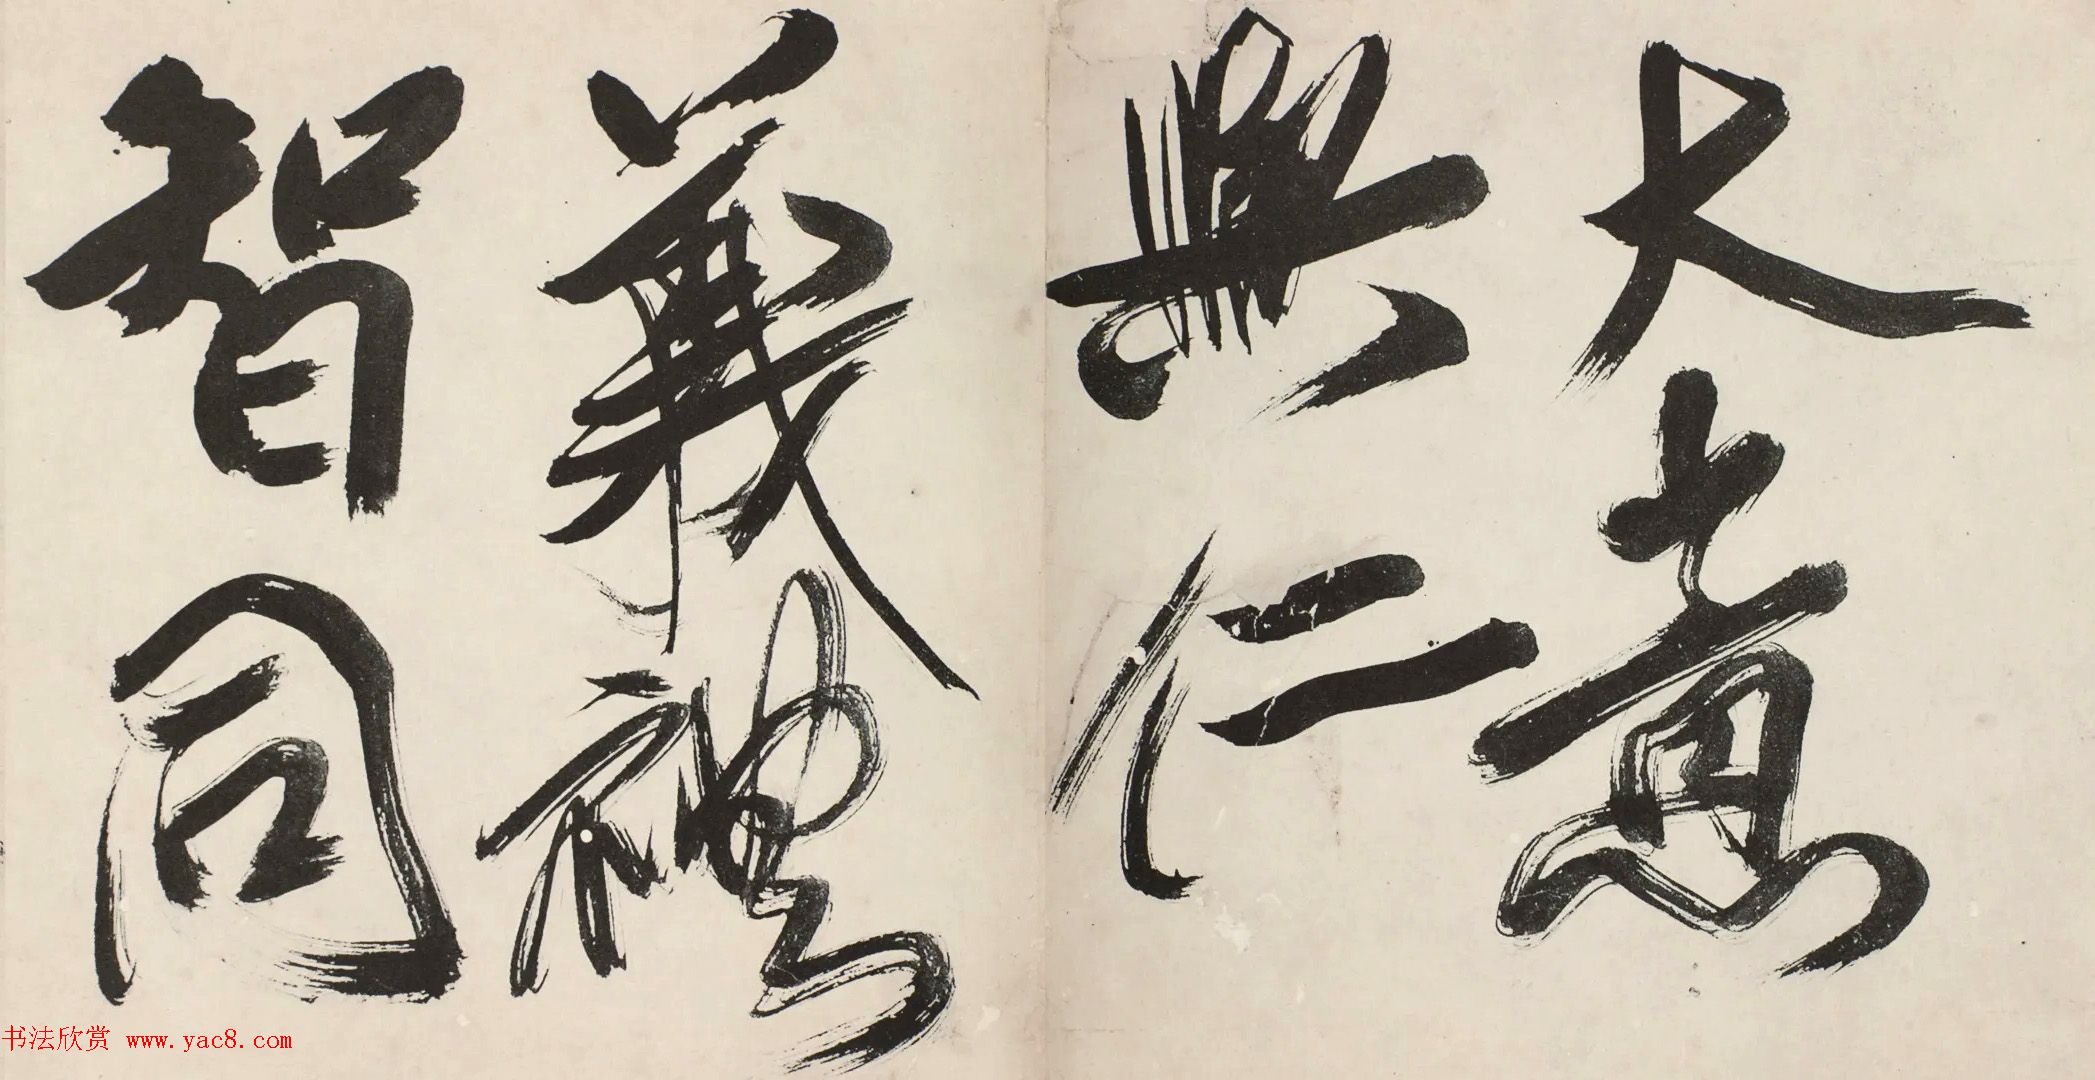 大意
與仁
義禮
智同
书法欣赏 www.yac8.com